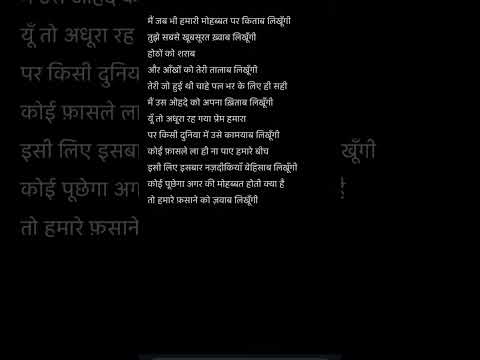 मैं जब भी हमारी मोहब्बत पर किताब लिखूँगी
तुझे सबसे खूबसूरत ख़्वाब लिखूँगी
होठों को शराब
और आँखों को तेरी तालाब लिखूँगी
तेरी जो हुई थी चाहे पल भर के लिए ही सही
मैं उस ओहदे को अपना ख़िताब लिखूँगी
यूँ तो अधूरा रह गया प्रेम हमारा
पर किसी दुनिया में उसे कामयाब लिखूँगी
कोई फ़ासले ला ही ना पाए हमारे बीच
इसी लिए इसबार नज़दीकियाँ बेहिसाब लिखूँगी
कोई पूछेगा अगर की मोहब्बत होती क्या है
तो हमारे फ़साने को ज़वाब लिखूँगी